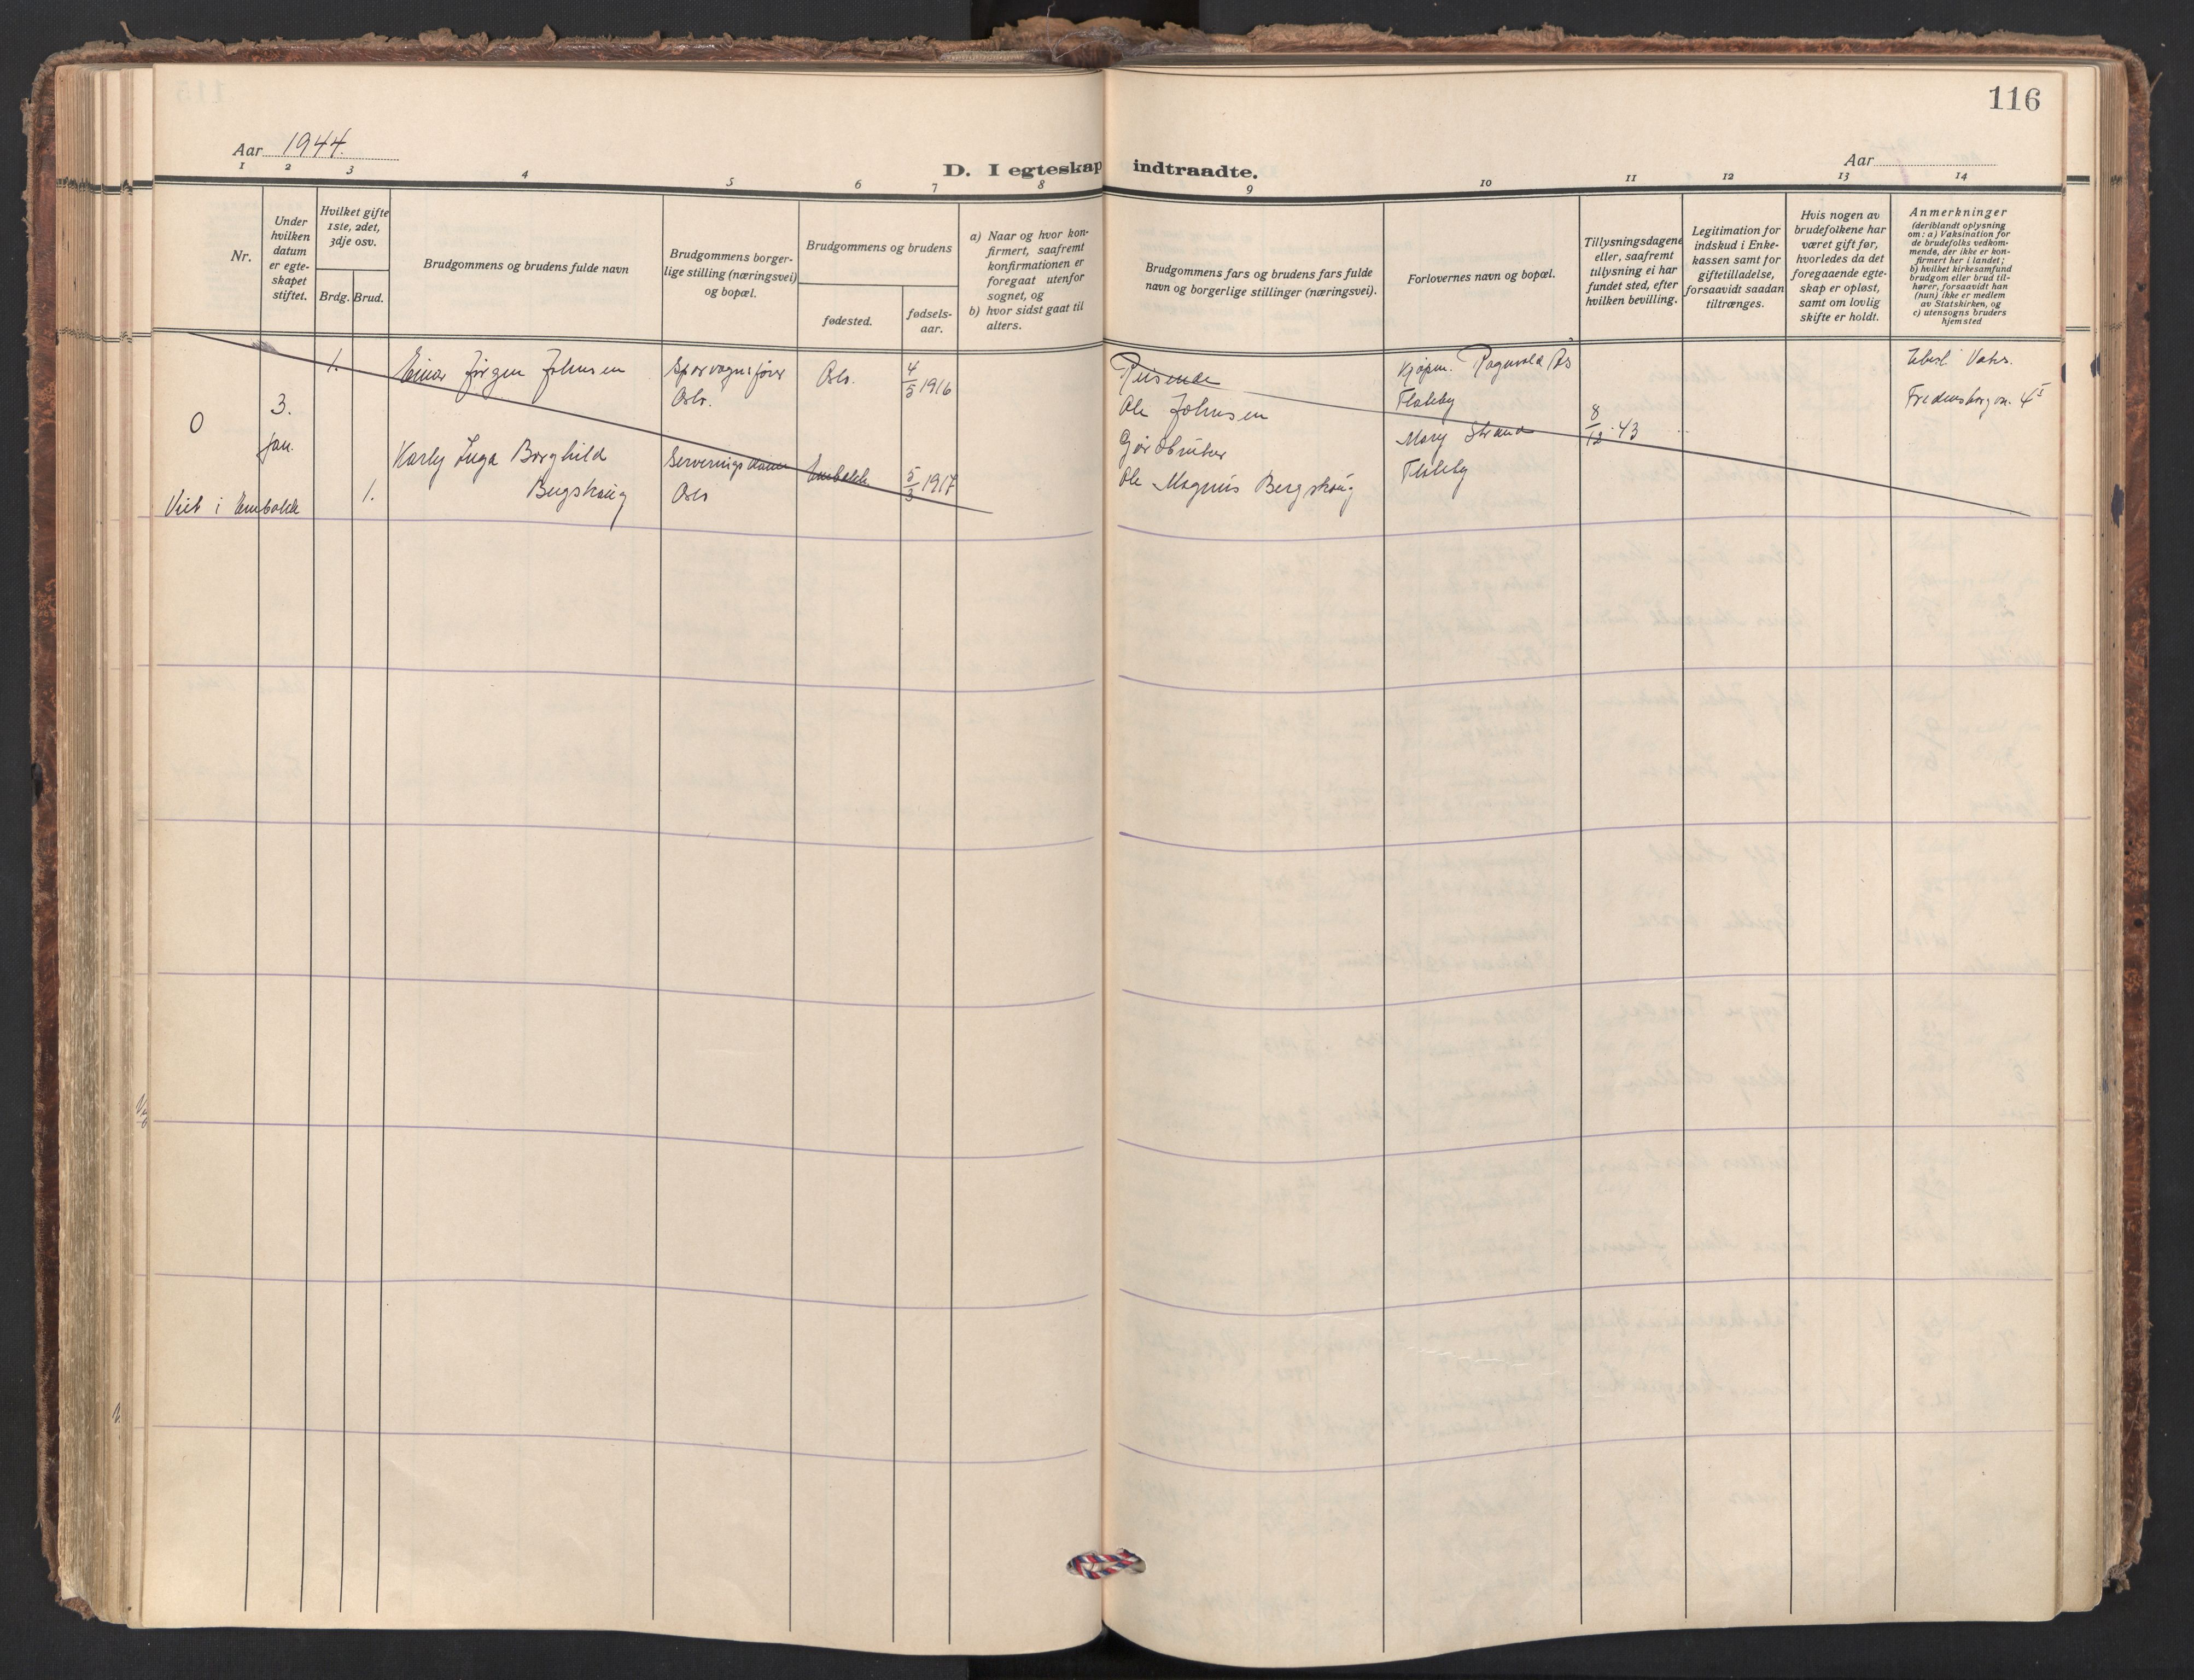 116
Aar 1944.
Aar
D. I egteskap indtraadte.
1 2 3 4 5 6 7 8 9 10 11 12 13 14
Nr.
Under hvilken datum er egteskapet stiftet.
Hvilket gifte 1ste, 2det, 3dje osv.
Brdg. Brud.
Brudgommens og brudens fulde navn
Brudgommens borgerlige stilling (næringsvei) og bopæl.
Brudgommens og brudens
fødested.
fødselsaar.
a) Naar og hvor konfirmert, saafremt konfirmationen er foregaat utenfor sognet, og
b) hvor sidst gaat til alters.
Brudgommens fars og brudens fars fulde navn og borgerlige stillinger (næringsvei).
Forlovernes navn og bopæl.
Tillysningsdagene eller, saafremt tillysning ei har fundet sted, efter hvilken bevilling.
Legitimation for indskud i Enkekassen samt for giftetilladelse, forsaavidt saadan tiltrænges.
Hvis nogen av brudefolkene har været gift før, hvorledes da det foregaaende egteskap er opløst, samt om lovlig skifte er holdt.
Anmerkninger
(deriblandt oplysning om: a) Vaksination for de brudefolks vedkommende, der ikke er konfirmert her i landet;
b) hvilket kirkesamfund brudgom eller brud tilhører, forsaavidt han (hun) ikke er medlem av Statskirken, og
c) utensogns bruders hjemsted
0
3.
jan.
1.
Einar Jørgen Johnsen
Sporvognsfører
Oslo.
Oslo.
4/5 1916
Reisende
Ole Johnsen
Kjøpm. Ragnvald Ås
Flateby
8/12 43
Vaks.
Fredensborgvn. 4
Viet i Enebakk
1.
Karly Inga Borghild
Bergskaug
Serveringsdame
Oslo
Enebakk
5/3 1917
Gårdbruker
Ole Magnus Bergskaug
Mary Strand
Flateby